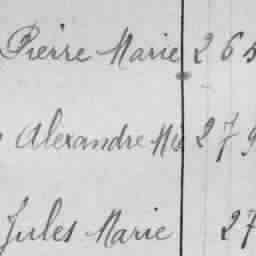 Pierre Marie 265
Alexandre Me 279
Jules Marie 27